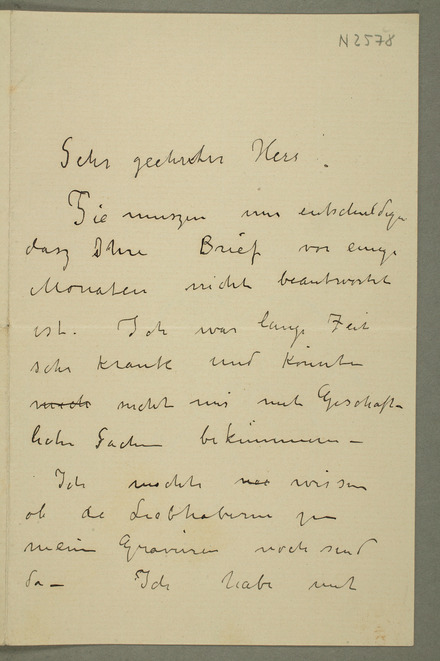 N2578
Sehr geehrter Herr.
Sie muszen mir entschuldigen
dasz Ihre Brief vor einige
Monaten nicht beantwortet
ist. Ich war lange Zeit
sehr krank und konnte
nicht mir mit Geschäft-
liche Sachen bekümmern -
Ich mochte wissen
ob da Liebhabern zu
meine Gravüren noch sind
da - Ich habe mit